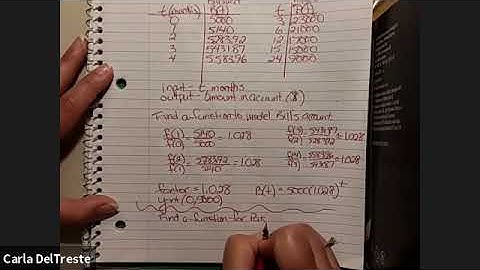 t (months) B(t) t P(t)
0 5000 3 23000
1 5140 6 21000
2 5283.92 12 17000
3 5431.87 15 15000
4 5583.96 24 9000
input = t, months
output = amount in account ($)
Find a function to model Bill's account
f(1)/f(0) = 5140/5000 = 1.028 f(3)/f(2) = 5431.87/5283.92 = 1.028
f(2)/f(1) = 5283.92/5140 = 1.028 f(4)/f(3) = 5583.96/5431.87 = 1.028
factor = 1.028 B(t) = 5000(1.028)^t
y-int (0, 5000)
Find a function for
Carla DelTreste